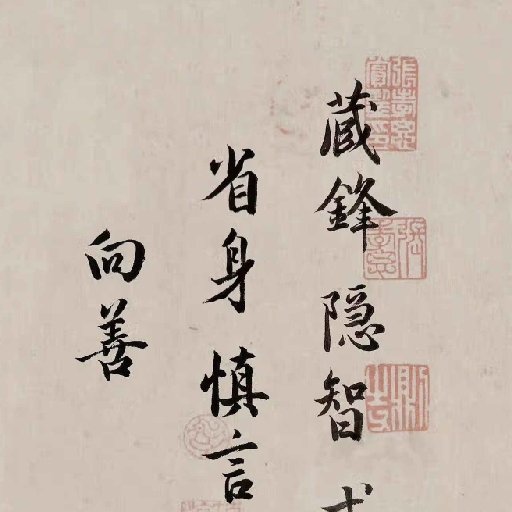 藏鋒隐智
省身慎言
向善